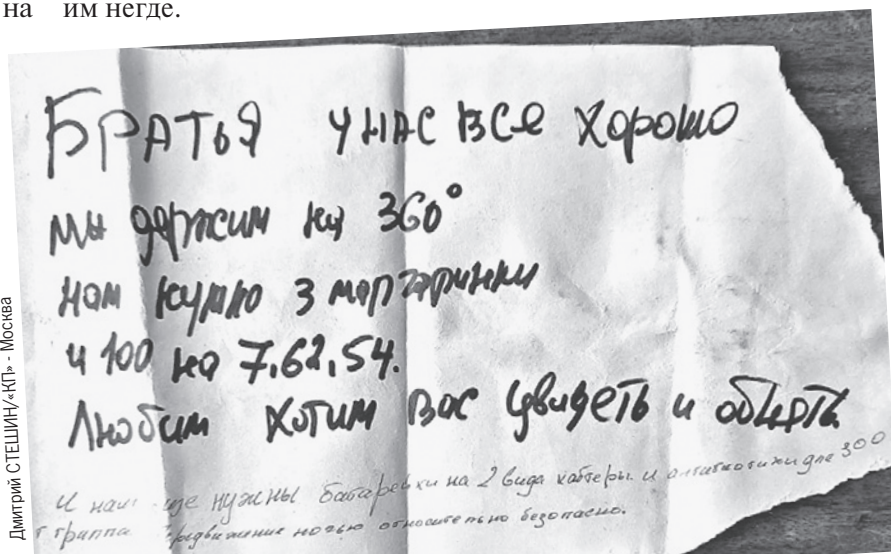 на им негде.
БРАТЬЯ У НАС ВСЕ ХОРОШО
МЫ держим на 360°
нам нужно 3 маргаринки
и 100 на 7.62.54.
Любим ХОТИМ Вас увидеть и обнять
И нам еще нужны батарейки на 2 вида и для 300
группа ночью относительно безопасно.
Дмитрий СТЕШИН/«КП» - Москва